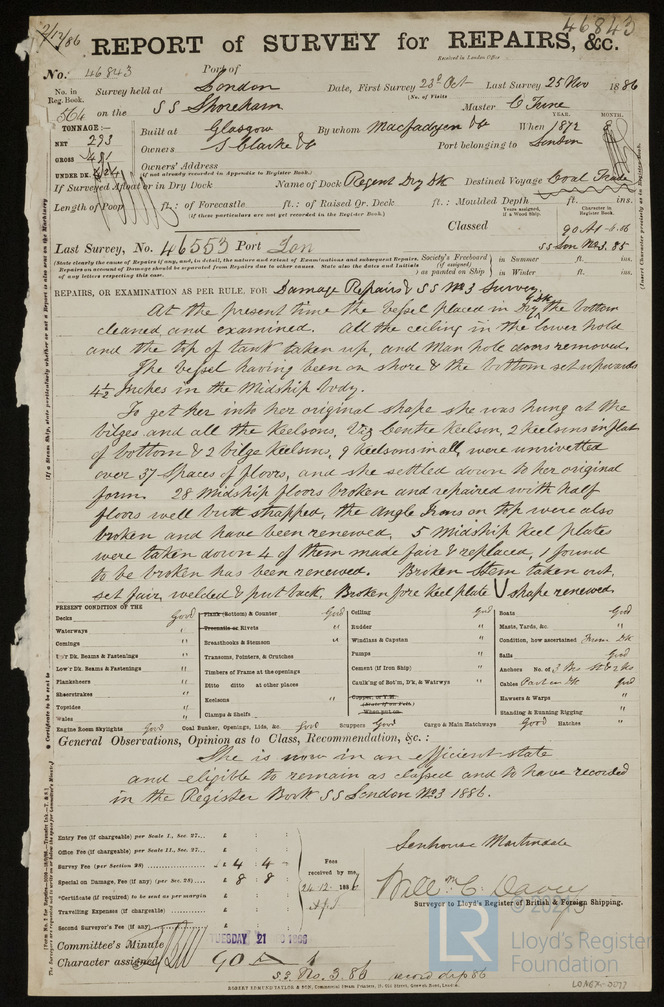 2/12/86
46843
REPORT of SURVEY for REPAIRS, &c.
Received in London Office
No. 46843 Port of London
No. in Reg. Book. Survey held at London Date, First Survey 23d Oct Last Survey 25 Nov 1886
(No. of Visits
564 on the SS Shoreham Master C Trine
TONNAGE:—
NET 293
GROSS 481
UNDER DK.
Built at Glasgow By whom Macfadyen & Co When 1872
YEAR. MONTH.
Owners S Clarke & Co Port belonging to London
Owners' Address
(if not already recorded in Appendix to Register Book.)
If Surveyed Afloat or in Dry Dock Name of Dock Regent Dry Dk Destined Voyage Coal Trade
Length of Poop ft.: of Forecastle ft.: of Raised Qr. Deck ft.: Moulded Depth ft. ins.
(if these particulars are not yet recorded in the Register Book.)
Years assigned, if a Wood Ship. Character in Register Book.
Classed 90 A1
SS Lon No 3. 85
Last Survey, No. 46553 Port Lon
(State clearly the cause of Repairs if any, and, in detail, the nature and extent of Examinations and subsequent Repairs. Repairs on account of Damage should be separated from Repairs due to other causes. State also the dates and initials of any letters respecting this case.
Society's Freeboard (if assigned) as painted on Ship in Summer ft. ins.
in Winter ft. ins.
REPAIRS, OR EXAMINATION AS PER RULE. FOR Damage Repairs & SS No 3 Survey.
At the present time the vessel placed in Dry Dk the bottom
cleaned and examined. All the ceiling in the lower hold
and the top of tank taken up, and Man hole doors removed.
The vessel having been on shore & the bottom set upwards
4½ Inches in the Midship body.
To get her into her original shape she was hung at the
bilges and all the Keelsons, Viz Centre Keelson, 2 Keelsons in flat
of bottom & 2 bilge Keelsons, 9 Keelsons in all, were unrivetted
over 37 spaces of floors, and she settled down to her original
form. 28 Midship floors broken and repaired with half
floors well butt strapped, the Angle Irons on top were also
broken and have been renewed. 5 Midship Keel plates
were taken down 4 of them made fair & replaced, 1 found
to be broken has been renewed. Broken Stem taken out,
set fair, welded & put back. Broken fore Keel plate U shape renewed.
PRESENT CONDITION OF THE
Decks Good
Waterways "
Comings "
Up'r Dk. Beams & Fastenings "
Low'r Dk. Beams & Fastenings "
Planksheers "
Sheerstrakes "
Topsides "
Wales "
Engine Room Skylights Good
Plank (Bottom) & Counter Good
Treenails or Rivets "
Breasthooks & Stemson "
Transoms, Pointers, & Crutches
Timbers of Frame at the openings
Ditto ditto at other places
Keelsons "
Clamps & Shelfs
Coal Bunker, Openings, Lids, &c. Good
Ceiling Good
Rudder "
Windlass & Capstan "
Pumps "
Cement (if Iron Ship) "
Caulk'ng of Bot'm, D'k, & Watrwys "
Copper, or Y.M.
(State if on Felt.)
When put on
Scuppers Good Cargo & Main Hatchways Good Hatches "
Boats Good
Masts, Yards, &c. "
Condition, how ascertained From Dk
Sails Good
Anchors No. of 3
Cables Good
Hawsers & Warps "
Standing & Running Rigging "
General Observations, Opinion as to Class, Recommendation, &c. :
She is now in an efficient state
and eligible to remain as classed and to have recorded
in the Register Book SS London No 3 1886.
Entry Fee (if chargeable) per Scale I., Sec. 27... £ : :
Office Fee (if chargeable) per Scale II., Sec. 27... £ : :
Survey Fee (per Section 28) £ 4 : 4 -
Special on Damage, Fee (if any) (per Sec. 28)... £ 8 : 8
*Certificate (if required) to be sent as per margin £ : :
Travelling Expenses (if chargeable) £ : :
Second Surveyor's Fee (if any) £ : :
Fees received by me,
24.12.1886
Senhouse Martindale
Will m C. Davey
Surveyor to Lloyd's Register of British & Foreign Shipping.
Committee's Minute TUESDAY 21 1886
Character assigned 90 A 1
S.S. No. 3. 86
LR
Lloyd's Register Foundation
LONEX-0077